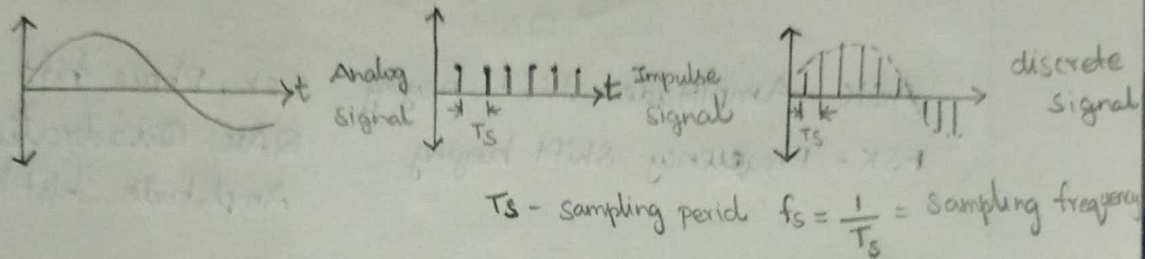 t Analog signal
t Impulse signal
Ts
discrete signal
Ts
Ts - sampling perid fs = 1/Ts = sampling frequency